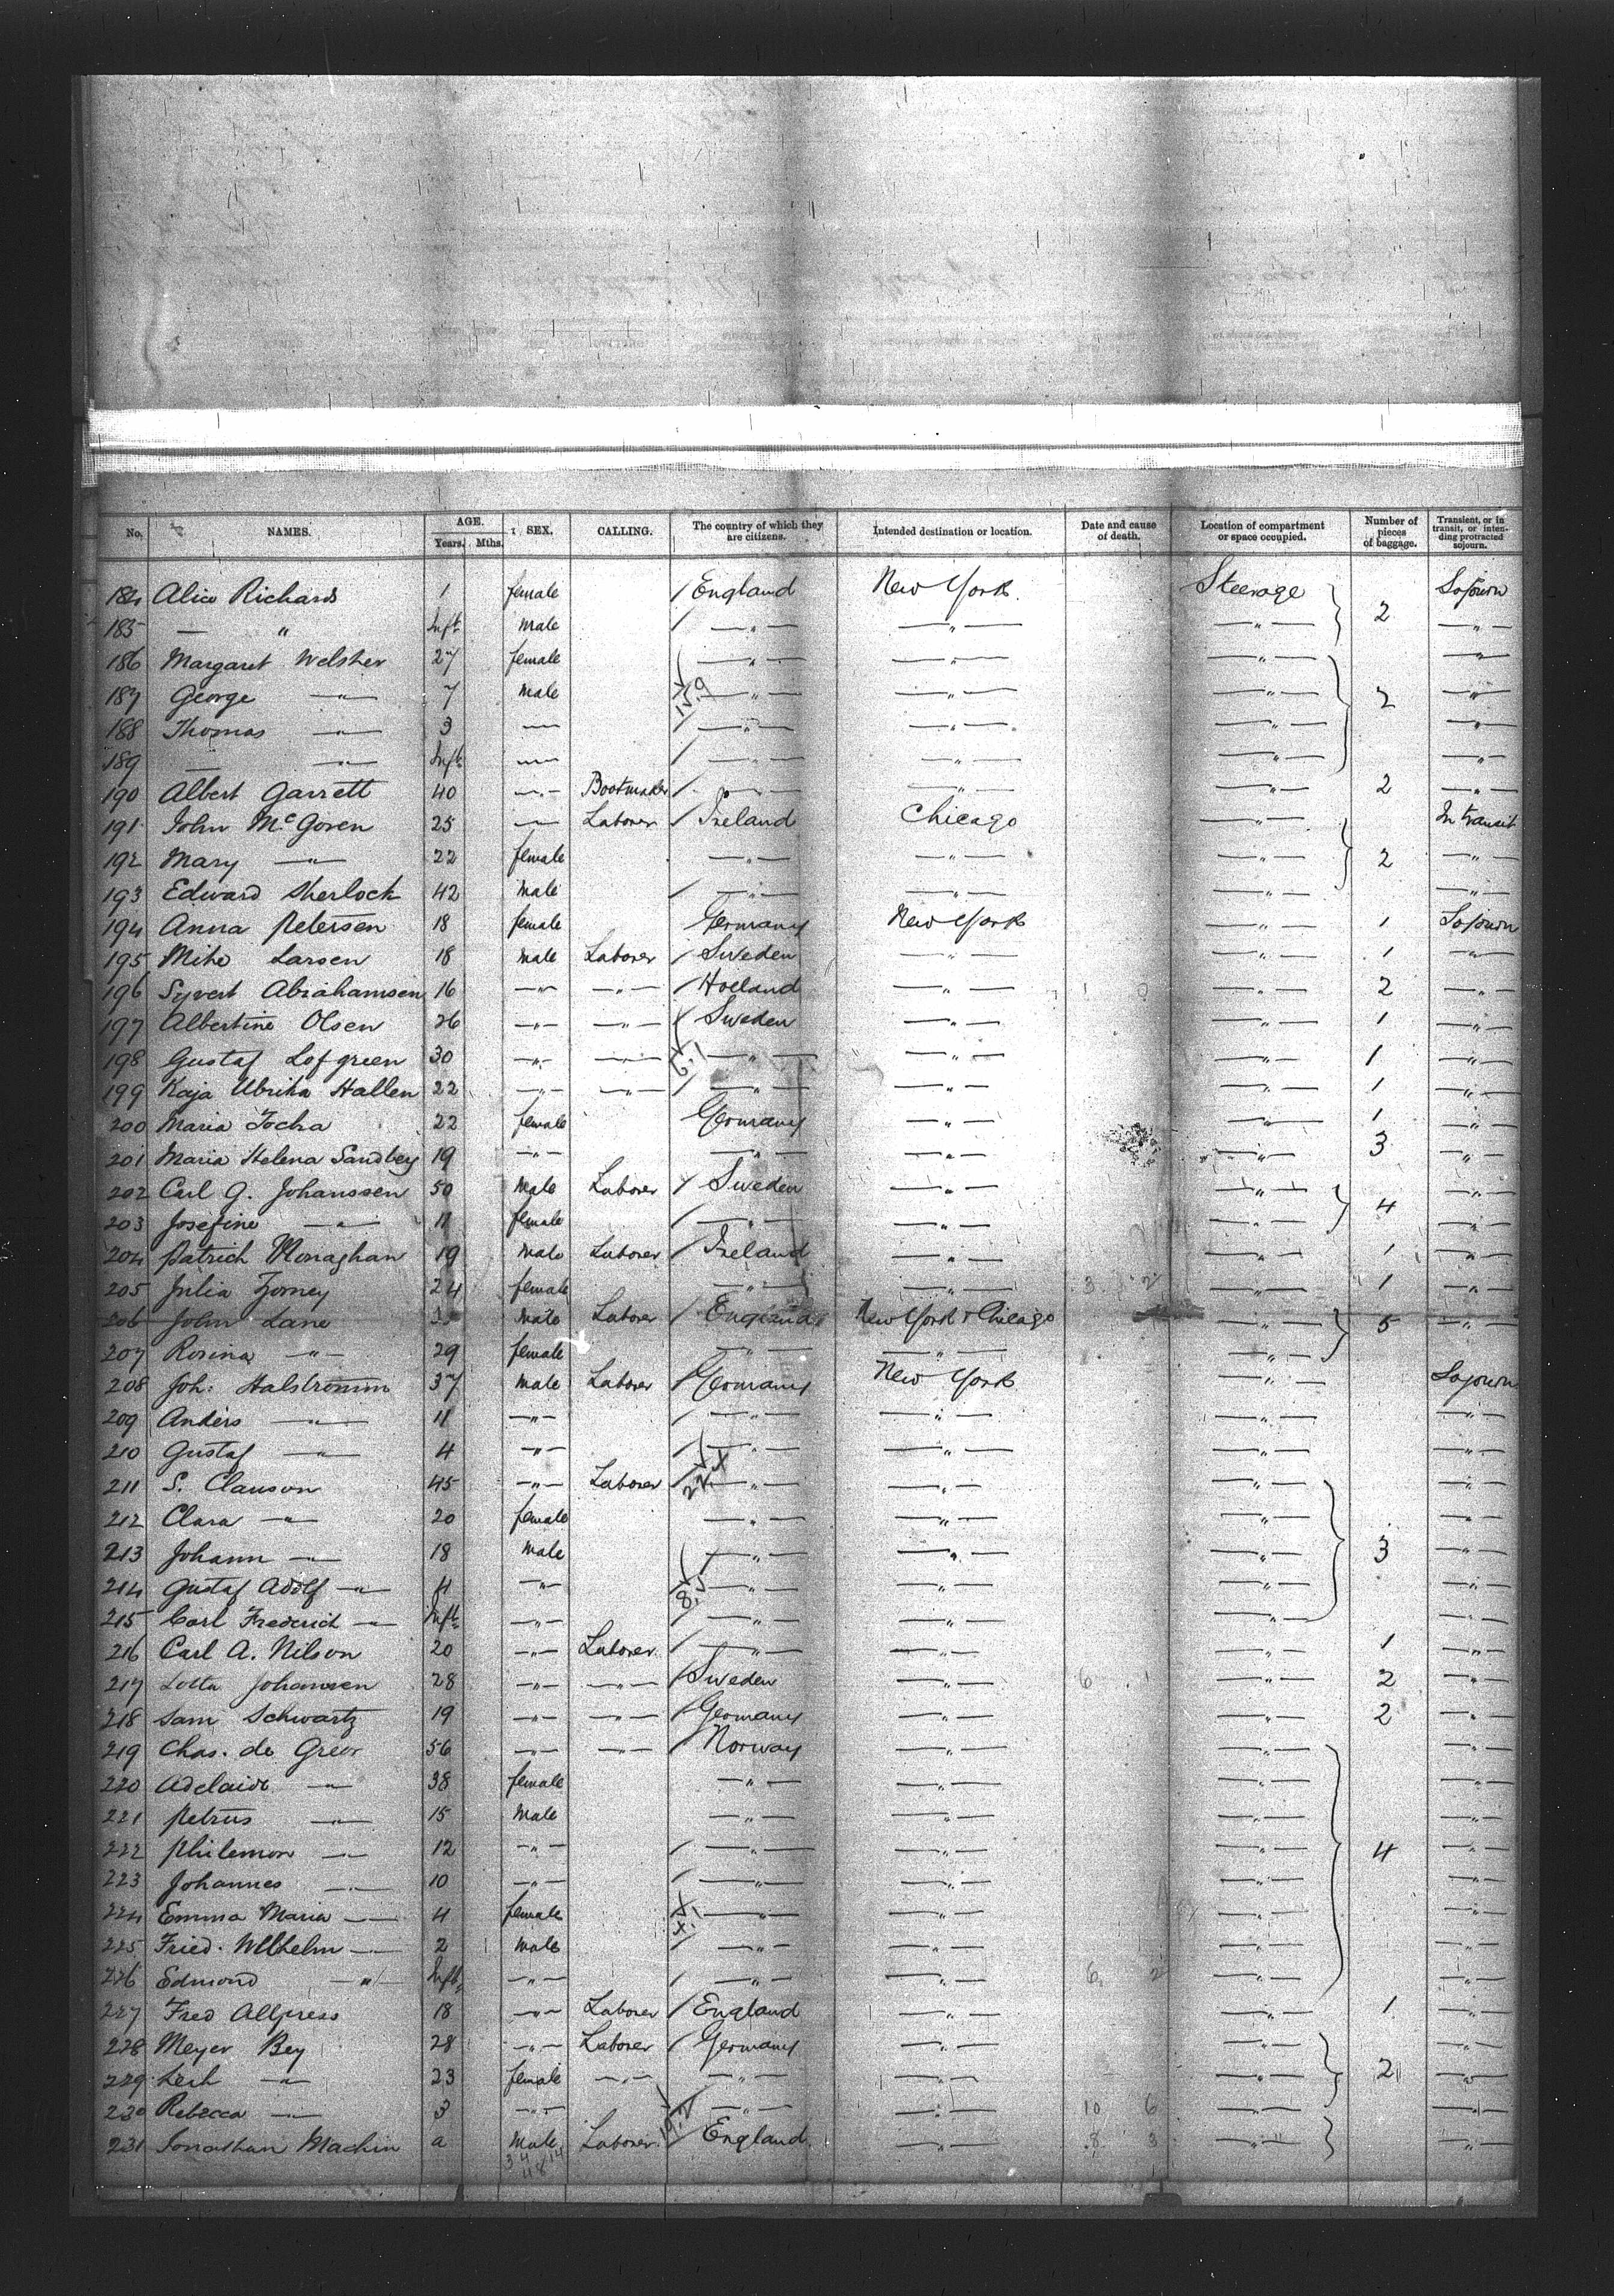 No. NAMES. AGE. Years. Mths. SEX. CALLING. The country of which they are citizens. Intended destination or location. Date and cause of death. Location of compartment or space occupied. Number of pieces of baggage. Transient, or in transit, or intending protracted sojourn.
184 Alice Richards 1 female / England New York. Steerage Sojourn
185 — " Inft. Male / —"— —"— —"— 2 —"—
186 Margaret Welsher 27 female —"— —"— —"— —"—
187 George —"— 7 Male —"— —"— —"— 2 —"—
188 Thomas —"— 3 —"— / —"— —"— —"— —"—
189 — —"— Inft. —"— / —"— —"— —"— —"—
190 Albert Garrett 40 —"— Bootmaker / —"— —"— —"— 2 —"—
191 John McGoven 25 —"— Laborer / Ireland Chicago —"— In transit
192 Mary —"— 22 female —"— —"— —"— 2 —"—
193 Edward Sherlock 42 Male / —"— —"— —"— —"—
194 Anna Petersen 18 female Germany New York —"— 1 Sojourn
195 Miho Larsen 18 Male Laborer / Sweden —"— —"— 1 —"—
196 Syvert Abrahamsen 16 —"— —"— / Holland —"— —"— 2 —"—
197 Albertine Olsen 26 —"— —"— / Sweden —"— —"— 1 —"—
198 Gustaf Lofgreen 30 —"— —"— —"— —"— —"— 1 —"—
199 Kaja Ulrika Hallen 22 —"— —"— / —"— —"— —"— 1 —"—
200 Maria Jocha 22 female Germany —"— —"— 1 —"—
201 Maria Helena Sandbey 19 —"— —"— —"— —"— 3 —"—
202 Carl G. Johanssen 50 Male Laborer / Sweden —"— —"— —"—
203 Josefine —"— 11 female / —"— —"— —"— 4 —"—
204 Patrich Monaghan 19 Male Laborer / Ireland —"— —"— 1 —"—
205 Julia Forney 24 female —"— —"— 3 2 —"— 1 —"—
206 John Lane Male Laborer / England New York & Chicago —"— 5 —"—
207 Rosina —"— 29 female —"— —"— —"—
208 Joh: Halstromm 37 Male Laborer / Germany New York —"— Sojourn
209 Anders —"— 11 —"— / —"— —"— —"— —"—
210 Gustaf —"— 4 —"— / —"— —"— —"— —"—
211 S. Clauson 45 —"— Laborer / —"— —"— —"— —"—
212 Clara —"— 20 female —"— —"— —"— —"—
213 Johann —"— 18 Male / —"— —"— —"— 3 —"—
214 Gustaf Adolf —"— 4 —"— —"— —"— —"— —"—
215 Carl Frederich —"— Inft. —"— / —"— —"— —"— —"—
216 Carl A. Nilson 20 —"— Laborer / —"— —"— —"— 1 —"—
217 Lotta Johansen 28 —"— —"— / Sweden —"— 6 —"— 2 —"—
218 Sam Schwartz 19 —"— —"— / Germany —"— —"— 2 —"—
219 Chas. de Greer 56 —"— —"— / Norway —"— —"— —"—
220 Adelaide —"— 38 female —"— —"— —"— —"—
221 Petrus —"— 15 Male —"— —"— —"— —"—
222 Philemon —"— 12 —"— / —"— —"— —"— 4 —"—
223 Johannes —"— 10 —"— / —"— —"— —"— —"—
224 Emma Maria —"— 4 female —"— —"— —"— —"—
225 Fried. Wilhelm —"— 2 Male / —"— —"— —"— —"—
226 Edmond —"— Inft. —"— / —"— —"— 6 2 —"— —"—
227 Fred Allpress 18 —"— Laborer / England —"— —"— 1 —"—
228 Meyer Bey 28 —"— Laborer / Germany —"— —"— —"—
229 Leih —"— 23 female —"— —"— —"— —"— 2 —"—
230 Rebecca —"— 3 —"— / —"— —"— 10 6 —"— —"—
231 Jonathan Machin a Male Laborer / England —"— 8 3 —"— —"—